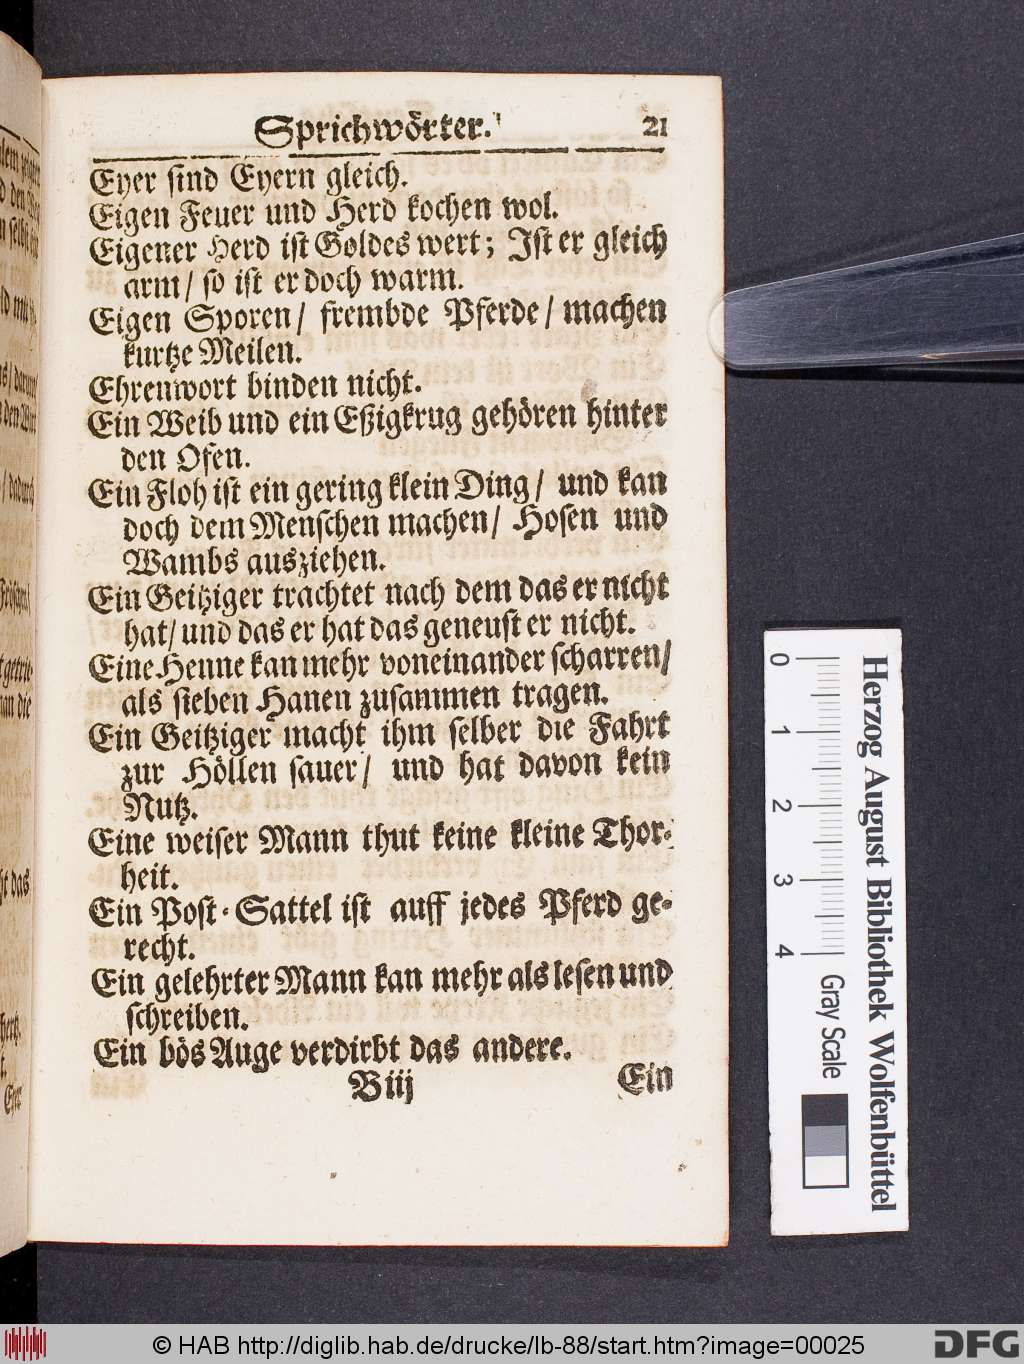 Sprichwörter. 21
Eyer sind Eyern gleich.
Eigen Feuer und Herd kochen wol.
Eigener Herd ist Goldes wert; Ist er gleich
arm/ so ist er doch warm.
Eigen Sporen/ frembde Pferde/ machen
kurtze Meilen.
Ehrenwort binden nicht.
Ein Weib und ein Eßigkrug gehören hinter
den Ofen.
Ein Floh ist ein gering klein Ding/ und kan
doch dem Menschen machen/ Hosen und
Wambs ausziehen.
Ein Geitziger trachtet nach dem das er nicht
hat/ und das er hat das geneust er nicht.
Eine Henne kan mehr voneinander scharren/
als sieben Hanen zusammen tragen.
Ein Geitziger macht ihm selber die Fahrt
zur Höllen sauer/ und hat davon kein
Nutz.
Eine weiser Mann thut keine kleine Thor-
heit.
Ein Post-Sattel ist auff jedes Pferd ge-
recht.
Ein gelehrter Mann kan mehr als lesen und
schreiben.
Ein bös Auge verdirbt das andere.
B iij Ein
0 1 2 3 4
Herzog August Bibliothek Wolfenbüttel
Gray Scale
© HAB http://diglib.hab.de/drucke/lb-88/start.htm?image=00025
DFG